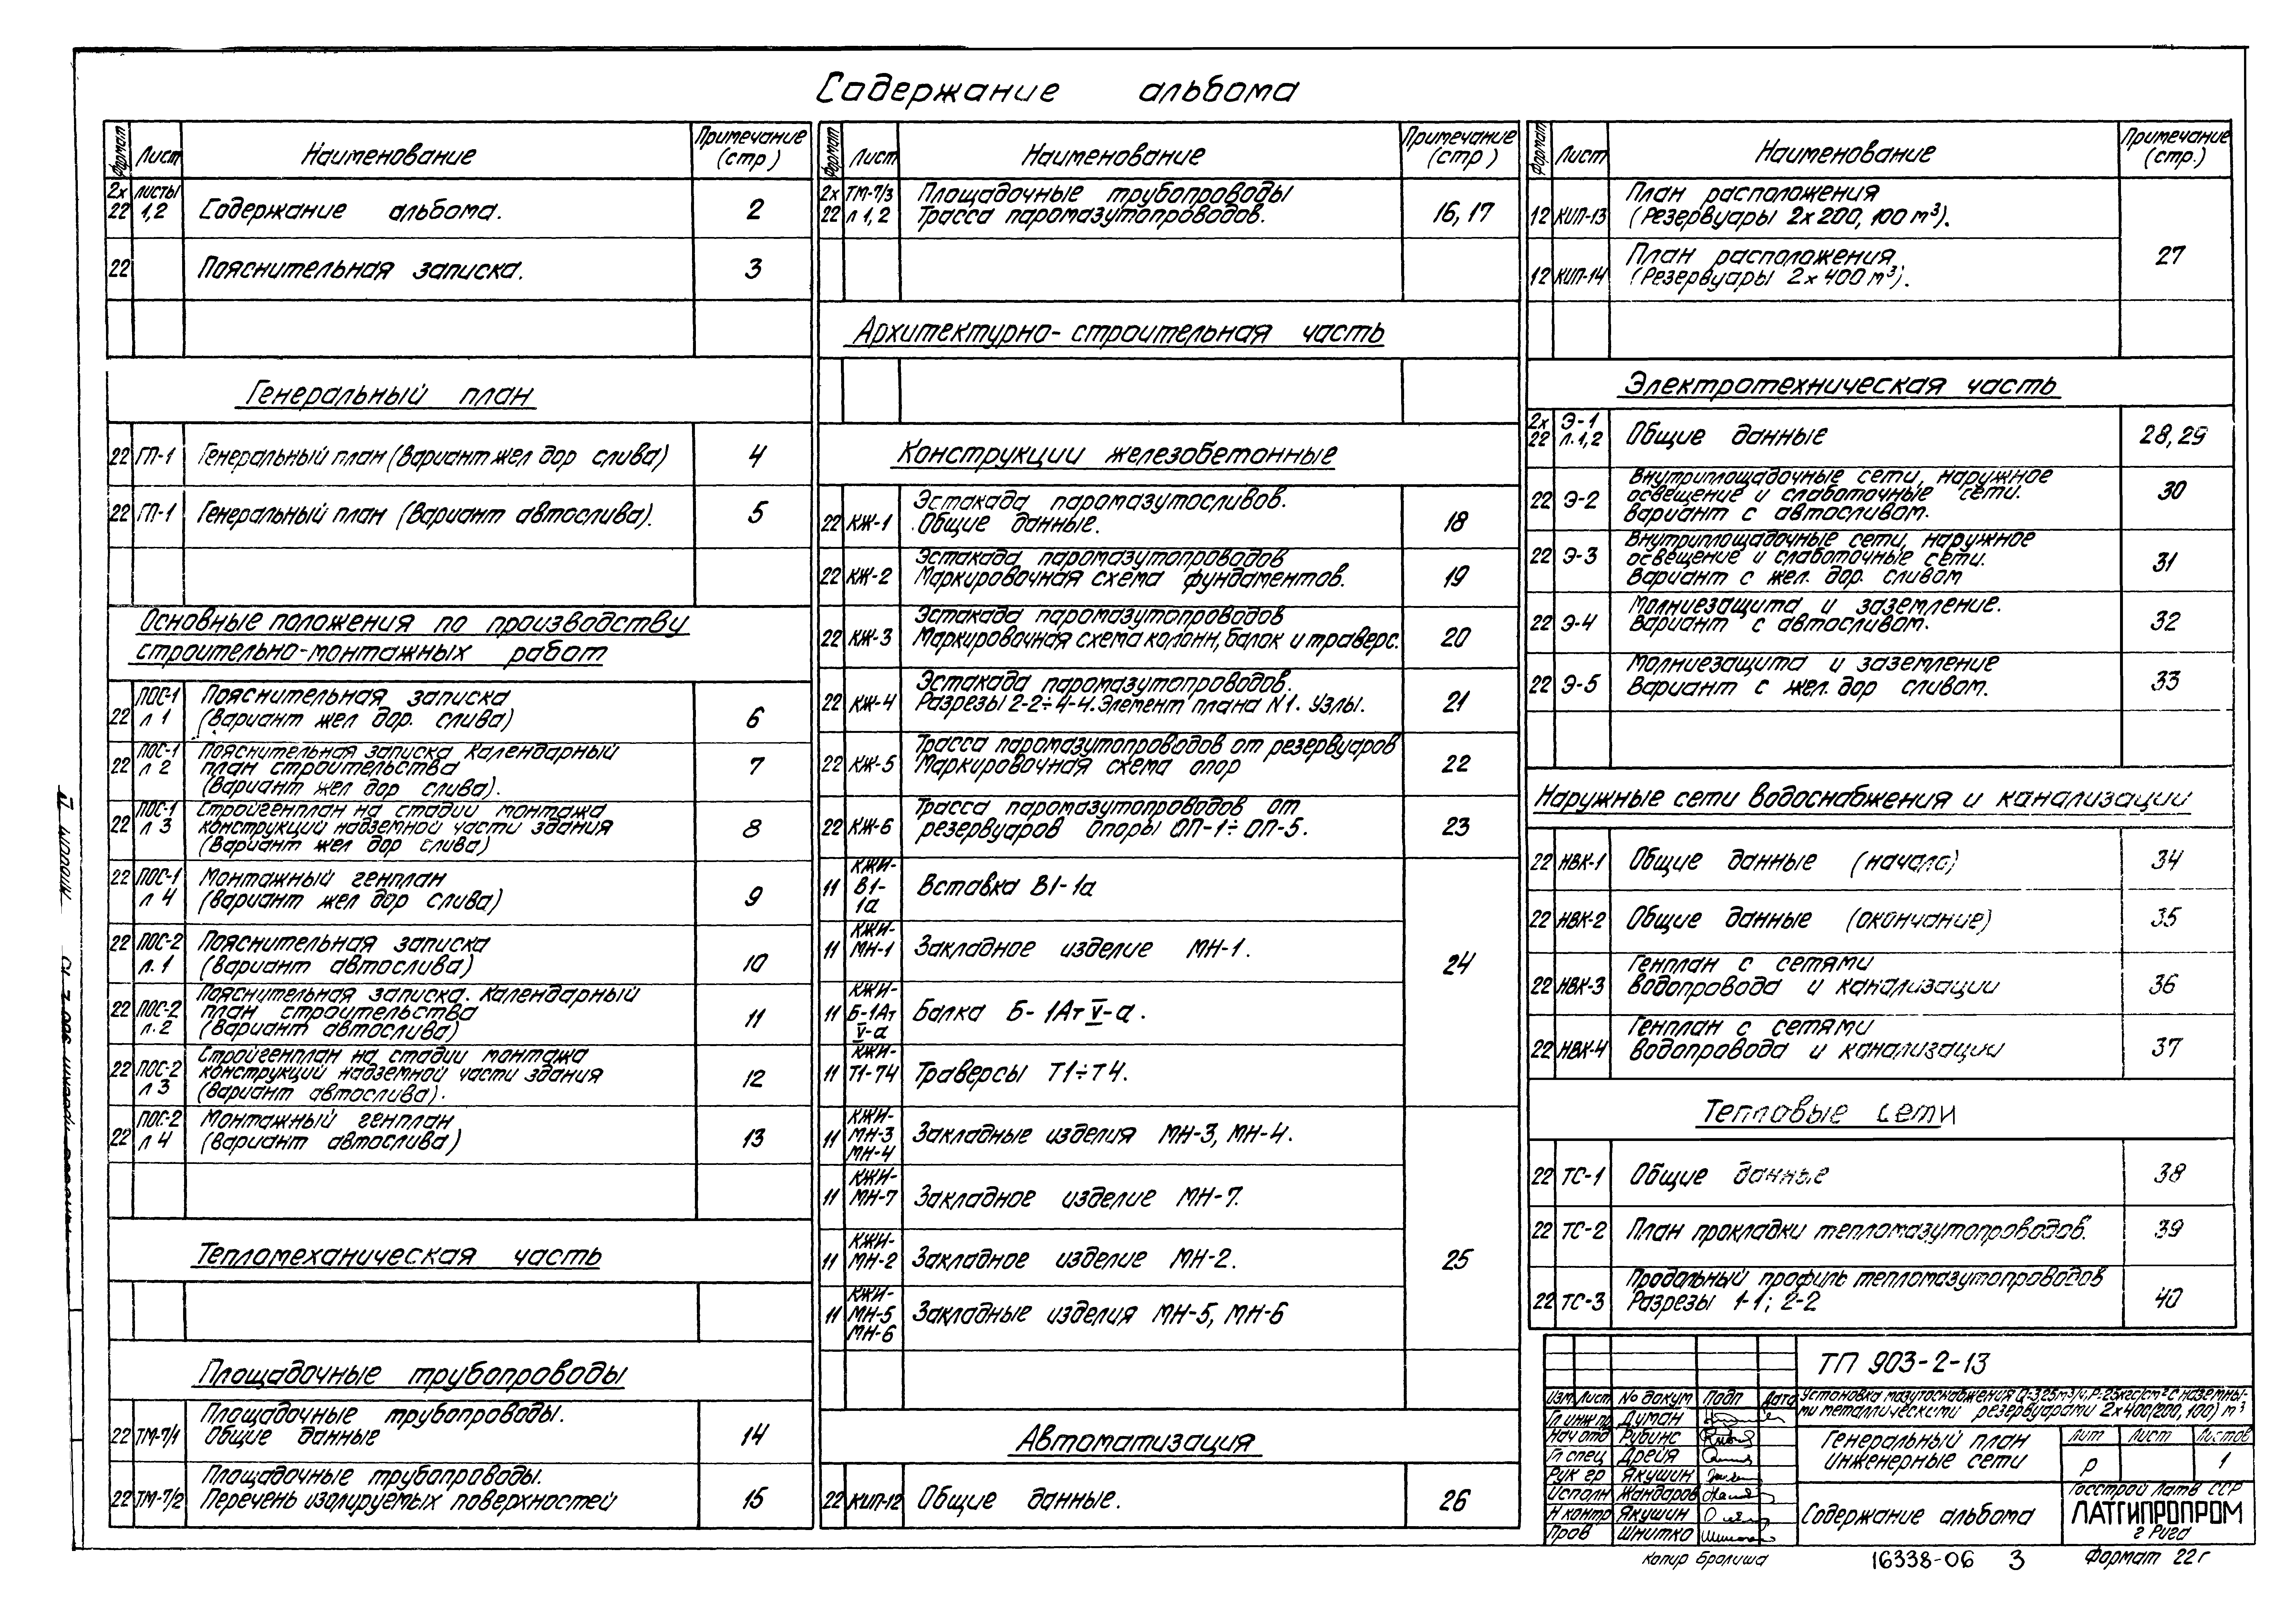 Содержание альбома
Формат Лист Наименование Примечание (стр)
2х22 листы 1,2 Содержание альбома. 2
22 Пояснительная записка. 3
Генеральный план
22 ГП-1 Генеральный план (Вариант жел дор слива) 4
22 ГП-1 Генеральный план (Вариант автослива). 5
Основные положения по производству
строительно-монтажных работ
22 ПОС-1 л 1 Пояснительная записка
(вариант жел дор. слива) 6
22 ПОС-1 л 2 Пояснительная записка Календарный
план строительства
(вариант жел дор слива). 7
22 ПОС-1 л 3 Стройгенплан на стадии монтажа
конструкций надземной части здания
(Вариант жел дор слива) 8
22 ПОС-1 л 4 Монтажный генплан
(вариант жел дор слива) 9
22 ПОС-2 л. 1 Пояснительная записка
(вариант автослива) 10
22 ПОС-2 л. 2 Пояснительная записка. Календарный
план строительства
(вариант автослива) 11
22 ПОС-2 л 3 Стройгенплан на стадии монтажа
конструкций надземной части здания
(вариант автослива). 12
22 ПОС-2 л 4 Монтажный генплан
(вариант автослива) 13
Тепломеханическая часть
Площадочные трубопроводы
22 ТМ-7/1 Площадочные трубопроводы.
Общие данные 14
22 ТМ-7/2 Площадочные трубопроводы.
Перечень изолируемых поверхностей 15
Формат Лист Наименование Примечание (стр)
2х22 ТМ-7/3 л 1,2 Площадочные трубопроводы
Трасса паромазутопроводов. 16, 17
Архитектурно-строительная часть
Конструкции железобетонные
22 КЖ-1 Эстакада паромазутосливов.
Общие данные. 18
22 КЖ-2 Эстакада паромазутопроводов
Маркировочная схема фундаментов. 19
22 КЖ-3 Эстакада паромазутопроводов
Маркировочная схема колонн, балок и траверс. 20
22 КЖ-4 Эстакада паромазутопроводов.
Разрезы 2-2÷4-4. Элемент плана N1. Узлы. 21
22 КЖ-5 Трасса паромазутопроводов от резервуаров
Маркировочная схема опор 22
22 КЖ-6 Трасса паромазутопроводов от
резервуаров опоры ОП-1÷ОП-5. 23
11 КЖИ-В1-1а Вставка В1-1а
11 КЖИ-МН-1 Закладное изделие МН-1. 24
11 КЖИ-Б-1Ат V-а Балка Б-1Ат V-а.
11 КЖИ-Т1-Т4 Траверсы Т1÷Т4.
11 КЖИ-МН-3 МН-4 Закладные изделия МН-3, МН-4.
11 КЖИ-МН-7 Закладное изделие МН-7.
11 КЖИ-МН-2 Закладное изделие МН-2. 25
11 КЖИ-МН-5 МН-6 Закладные изделия МН-5, МН-6
Автоматизация
22 КИП-12 Общие данные. 26
Формат Лист Наименование Примечание (стр.)
12 КИП-13 План расположения
(Резервуары 2х200, 100 м³).
27
12 КИП-14 План расположения
(Резервуары 2х400 м³).
Электротехническая часть
2х22 Э-1 л. 1,2 Общие данные 28, 29
22 Э-2 Внутриплощадочные сети, наружное
освещение и слаботочные сети.
Вариант с автосливом. 30
22 Э-3 Внутриплощадочные сети, наружное
освещение и слаботочные сети.
Вариант с жел. дор. сливом 31
22 Э-4 Молниезащита и заземление.
Вариант с автосливом. 32
22 Э-5 Молниезащита и заземление
Вариант с жел. дор сливом. 33
Наружные сети водоснабжения и канализации
22 НВК-1 Общие данные (начало) 34
22 НВК-2 Общие данные (окончание) 35
22 НВК-3 Генплан с сетями
водопровода и канализации 36
22 НВК-4 Генплан с сетями
водопровода и канализации 37
Тепловые сети
22 ТС-1 Общие данные 38
22 ТС-2 План прокладки тепломазутопроводов. 39
22 ТС-3 Продольный профиль тепломазутопроводов
Разрезы 1-1; 2-2 40
ТП 903-2-13
Изм Лист № докум Подп Дата
Установка мазутоснабжения Q=3,25м³/ч, Р=25кгс/см² с наземны-
ми металлическими резервуарами 2х400(200, 100) м³
Гл инж пр Думан
Нач отд Рубинс
Гл спец Дрейя
Рук гр Якушин
Исполн Жандаров
Н контр Якушин
Пров Шнитко
Генеральный план
инженерные сети
Лит Лист Листов
р 1
Содержание альбома
Госстрой Латв ССР
ЛАТГИПРОПРОМ
г Рига
Копир Бролиша
16338-06 3
Формат 22г